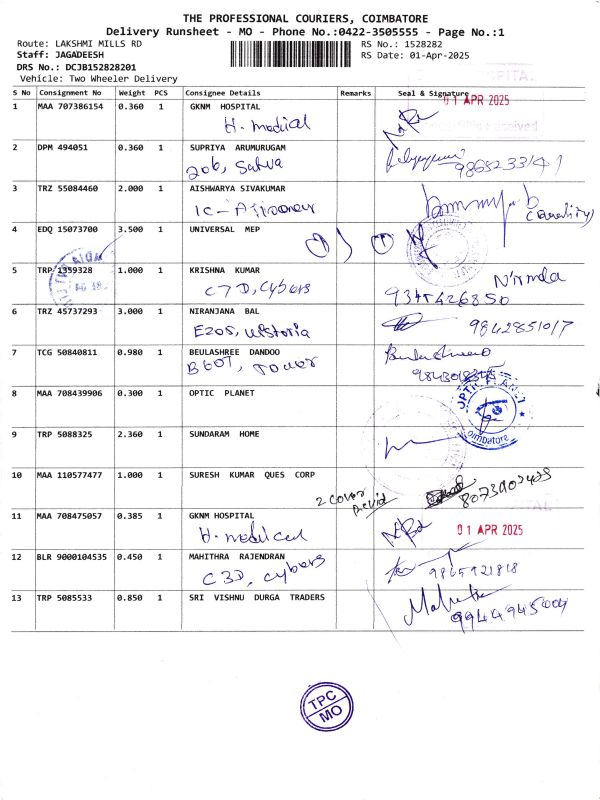 THE PROFESSIONAL COURIERS, COIMBATORE
Delivery Runsheet - MO - Phone No.:0422-3505555 - Page No.:1
Route: LAKSHMI MILLS RD RS No.: 1528282
Staff: JAGADEESH RS Date: 01-Apr-2025
DRS No.: DCJB152828201
Vehicle: Two Wheeler Delivery
S No Consignment No Weight PCS Consignee Details Remarks Seal & Signature
01 APR 2025
1 MAA 707386154 0.360 1 GKNM HOSPITAL
H. medical
2 DPM 494051 0.360 1 SUPRIYA ARUMURUGAM
206, Satva
3 TRZ 55084460 2.000 1 AISHWARYA SIVAKUMAR
1C-
4 EDQ 15073700 3.500 1 UNIVERSAL MEP
5 TRP 1359328 1.000 1 KRISHNA KUMAR
C7D, Cybers
6 TRZ 45737293 3.000 1 NIRANJANA BAL
9842851017
7 TCG 50840811 0.980 1 BEULASHREE DANDOO
B607, Tower
8 MAA 708439906 0.300 1 OPTIC PLANET
OPTIC PLANET
Coimbatore
9 TRP 5088325 2.360 1 SUNDARAM HOME
10 MAA 110577477 1.000 1 SURESH KUMAR QUES CORP
2 cover
11 MAA 708475057 0.385 1 GKNM HOSPITAL
H. medical 01 APR 2025
12 BLR 9000104535 0.450 1 MAHITHRA RAJENDRAN
C3D, cybers 9865921818
13 TRP 5085533 0.850 1 SRI VISHNU DURGA TRADERS
TPC
MO